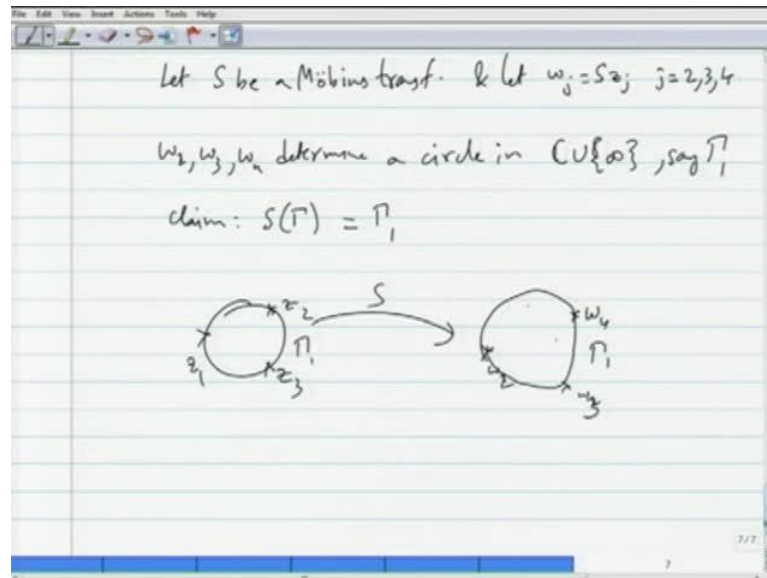 File Edit View Insert Actions Tools Help
Let S be a Möbius transf. & let w_j = Sz_j j=2,3,4
w_2, w_3, w_4 determine a circle in ℂ∪{∞}, say Γ_1
claim: S(Γ) = Γ_1
S
z_2 w_4
Γ_1 Γ_1
z_1 z_3 w_2 w_3
7/7
7